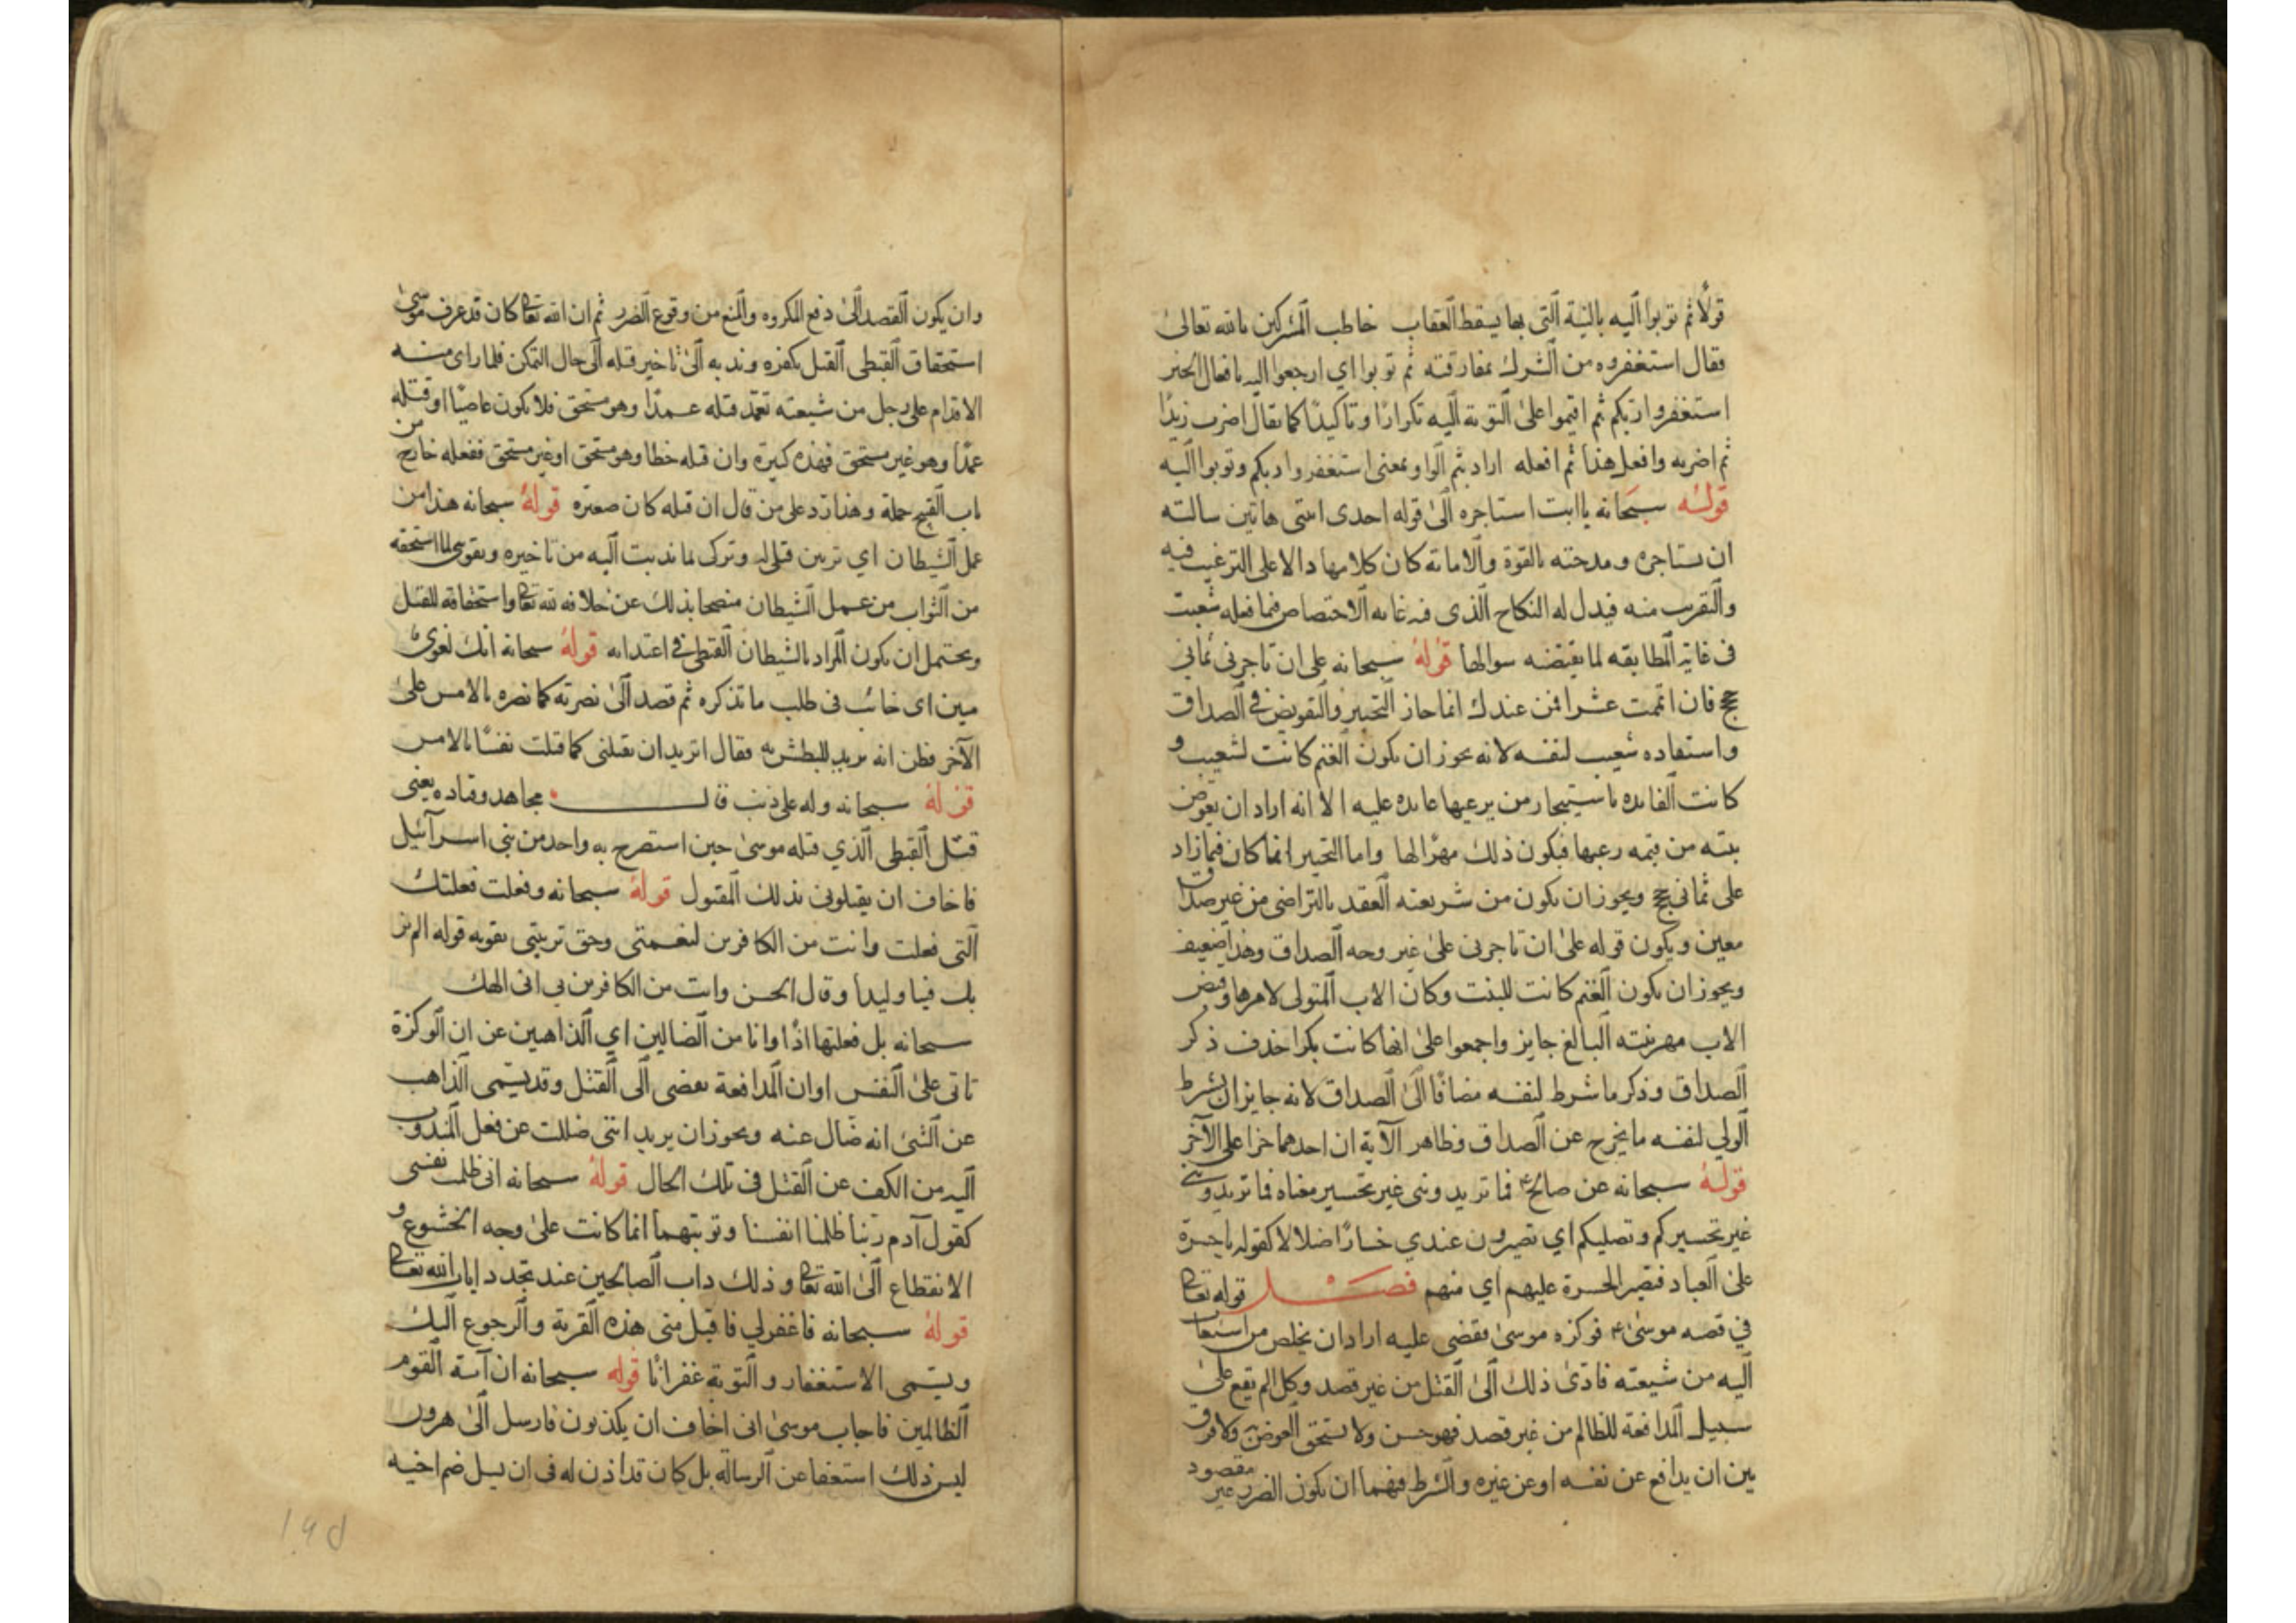 قولًا ثم توبوا اليه بالنية التى بها يسقط العقاب خاطب المشركين بالله تعالى
فقال استغفروه من الشرك بمفارقته ثم توبوا اي ارجعوا اليه بافعال الخير
استغفروا ربكم ثم اقيموا على التوبة اليه تكرارًا وتاكيدًا كما يقال اضرب زيدًا
ثم اضربه وافعل هذا ثم افعله اراد بثم الواو بمعنى استغفروا ربكم وتوبوا اليه
قوله سبحانه ياابت استاجره الى قوله احدى ابنتى هاتين سالته
ان يستاجره ومدحته بالقوة والامانة كان كلامها دالا على الترغيب فيه
والتقرب منه فبذل له النكاح الذى فيه غاية الاختصاص فما فعله شعيب
فى غاية المطابقه لما يقتضيه سوالها قوله سبحانه على ان تاجرنى ثمانى
حجج فان اتممت عشرا فمن عندك انما جاز التخيير والتفويض فى الصداق
واستفاده شعيب لنفسه لانه يجوز ان يكون الغنم كانت لشعيب و
كانت الفايده باستيجار من يرعيها عايده عليه الا انه اراد ان يعوض
بنته من قيمه رعيها فيكون ذلك مهرًا لها واما التخيير انما كان فيما زاد
على ثمانى حجج ويجوز ان يكون من شريعته العقد بالتراضى من غير صداق
معين ويكون قوله على ان تاجرنى على غير وجه الصداق وهذا ضعيف
ويجوز ان يكون الغنم كانت للبنت وكان الاب المتولى لامرها وقبض
الاب مهر بنته البالغ جايز واجمعوا على انها كانت بكرا حذف ذكر
الصداق وذكر ما شرط لنفسه مضافًا الى الصداق لانه جايز ان يشرط
الولي لنفسه ما يخرج عن الصداق وظاهر الآية ان احدهما جزا على الآخر
قوله سبحانه عن صالح ع فما تزيدوننى غير تخسير معناه فما تزيدوننى
غير تخسيركم وتضليلكم اي تصيرون عندي خسارًا ضلالا كقوله ياحسرة
على العباد فتصير الحسرة عليهم اي منهم فصل قوله تعالى
في قصه موسى ع فوكزه موسى فقضى عليه اراد ان يخلص من استغاث
اليه من شيعته فادى ذلك الى القتل من غير قصد وكل الم يقع على
سبيل المدافعة للظالم من غير قصد فهو حسن ولا يستحق العوض به ولا فرق
بين ان يدافع عن نفسه او عن غيره والشرط فيهما ان يكون الضرر غير مقصود
وان يكون القصد الى دفع المكروه والمنع من وقوع الضرر ثم ان الله تعالى كان قد عرف موسى
استحقاق القبطى القتل بكفره وندبه الى تاخير قتله الى حال التمكن فلما راى منه
الاقدام على رجل من شيعته تعمد قتله عمدًا وهو مستحق فلا يكون عاصيًا او قتله
عمدًا وهو غير مستحق فهذه كبيرة وان قتله خطا وهو مستحق او غير مستحق ففعله خارج من
باب القبيح جملة وهذا رد على من قال ان قتله كان صغيره قوله سبحانه هذا من
عمل الشيطان اي تزيين قتلى له وتركى ما ندبت اليه من تاخيره وتفويتى لما استحقه
من الثواب من عمل الشيطان مفصحا بذلك عن خلافه لله تعالى واستحقاقه للقتل
ويحتمل ان يكون المراد بالشيطان القبطى فى اعتدائه قوله سبحانه انك لغوى
مبين اى خائب فى طلب ما تذكره ثم قصد الى نصرته كما نصره بالامس على
الآخر فظن انه يريد للبطش به فقال اتريد ان تقتلنى كما قتلت نفسًا بالامس
قوله سبحانه وله على ذنب قال مجاهد وقتاده يعنى
قتل القبطى الذي قتله موسى حين استصرخ به واحد من بنى اسرآئيل
فاخاف ان يقتلونى بذلك المقتول قوله سبحانه وفعلت فعلتك
التى فعلت وانت من الكافرين لنعمتى وحق تربيتى يقويه قوله الم نر
بك فينا وليدا وقال الحسن وانت من الكافرين بى انى الهك
سبحانه بل فعلتها اذًا وانا من الضالين اي الذاهبين عن ان الوكزة
تاتى على النفس او ان المدافعة تفضى الى القتل وقد يسمى الذاهب
عن الشئ انه ضال عنه ويجوز ان يريد اننى ضللت عن فعل المندوب
اليه من الكف عن القتل فى تلك الحال قوله سبحانه انى ظلمت نفسى
كقول آدم ربنا ظلمنا انفسنا وتوبتهما انما كانت على وجه الخشوع و
الانقطاع الى الله تعالى وذلك داب الصالحين عند تجدد ايات الله تعالى
قوله سبحانه فاغفرلي فاقبل منى هذه القربة والرجوع اليك
ويسمى الاستغفار والتوبة غفرانًا قوله سبحانه ان آئت القوم
الظالمين فاجاب موسى انى اخاف ان يكذبون فارسل الى هرون
ليس ذلك استعفا عن الرسالة بل كان قد اذن له فى ان يسل ضم اخيه